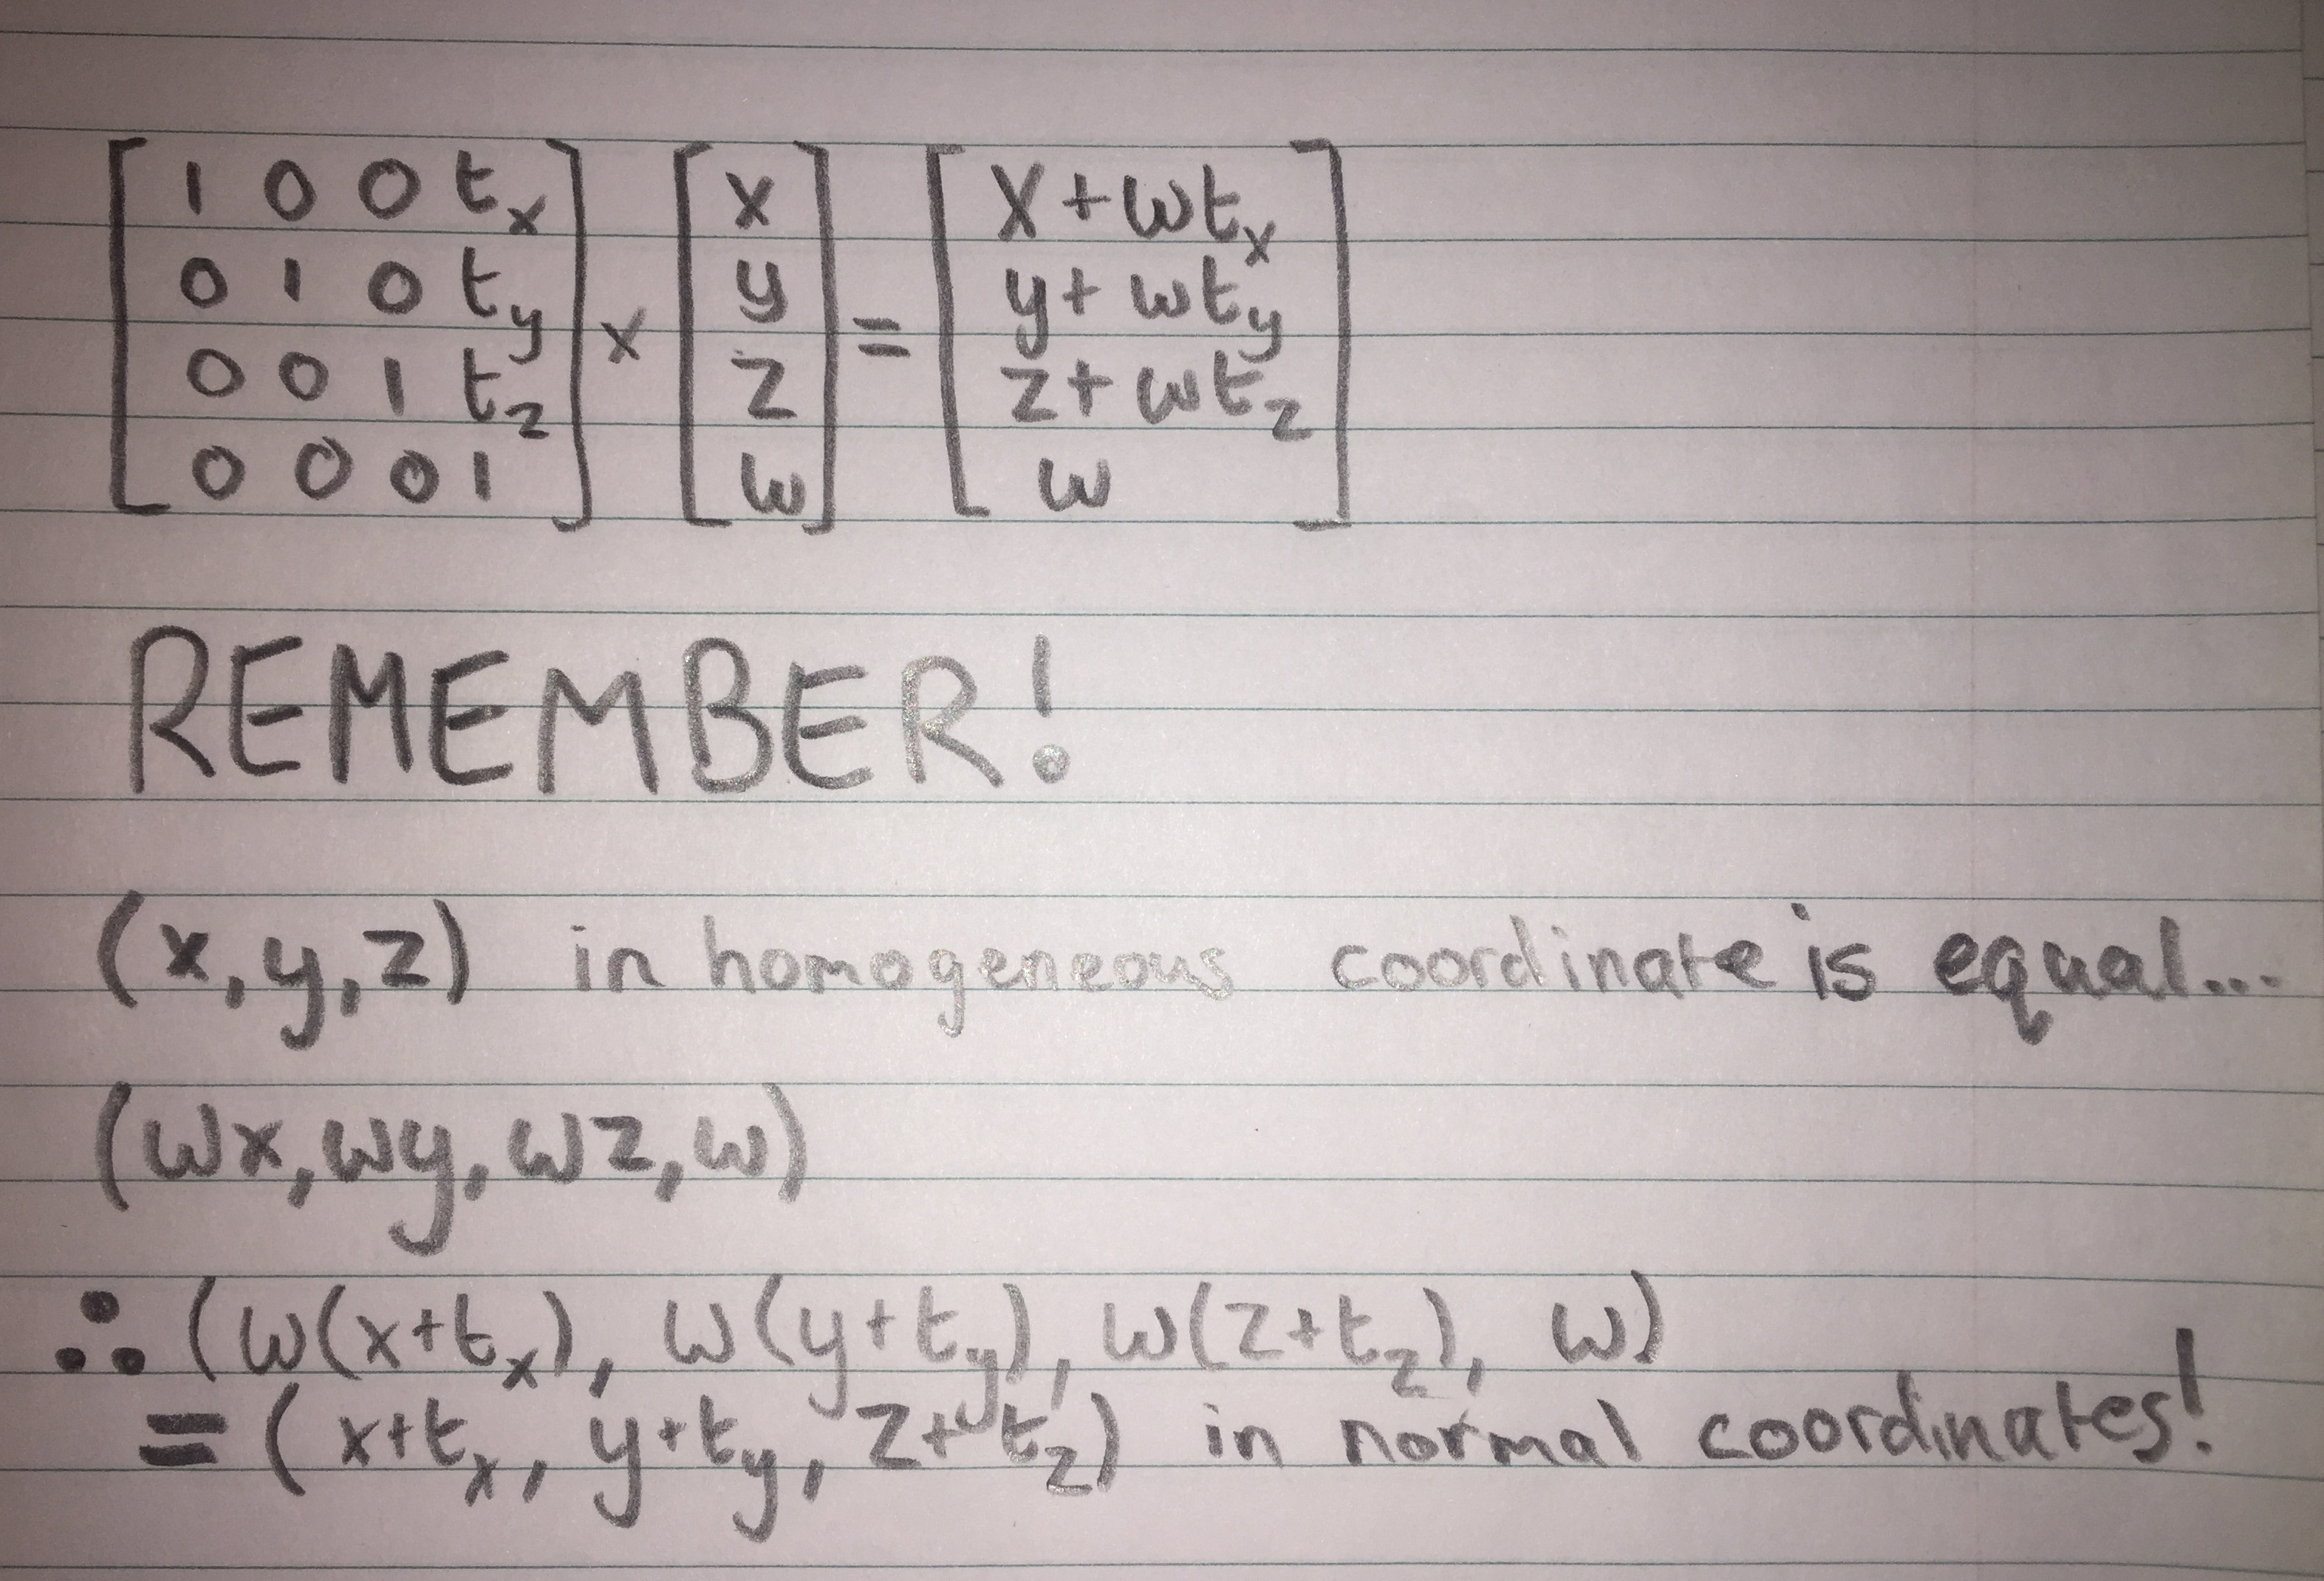 [ 1 0 0 tx ] [ x ] [ x + wtx ]
[ 0 1 0 ty ] × [ y ] = [ y + wty ]
[ 0 0 1 tz ] [ z ] [ z + wtz ]
[ 0 0 0 1 ] [ w ] [ w ]
REMEMBER!
(x,y,z) in homogeneous coordinate is equal...
(wx,wy,wz,w)
∴ (w(x+tx), w(y+ty), w(z+tz), w)
= (x+tx, y+ty, z+tz) in normal coordinates!